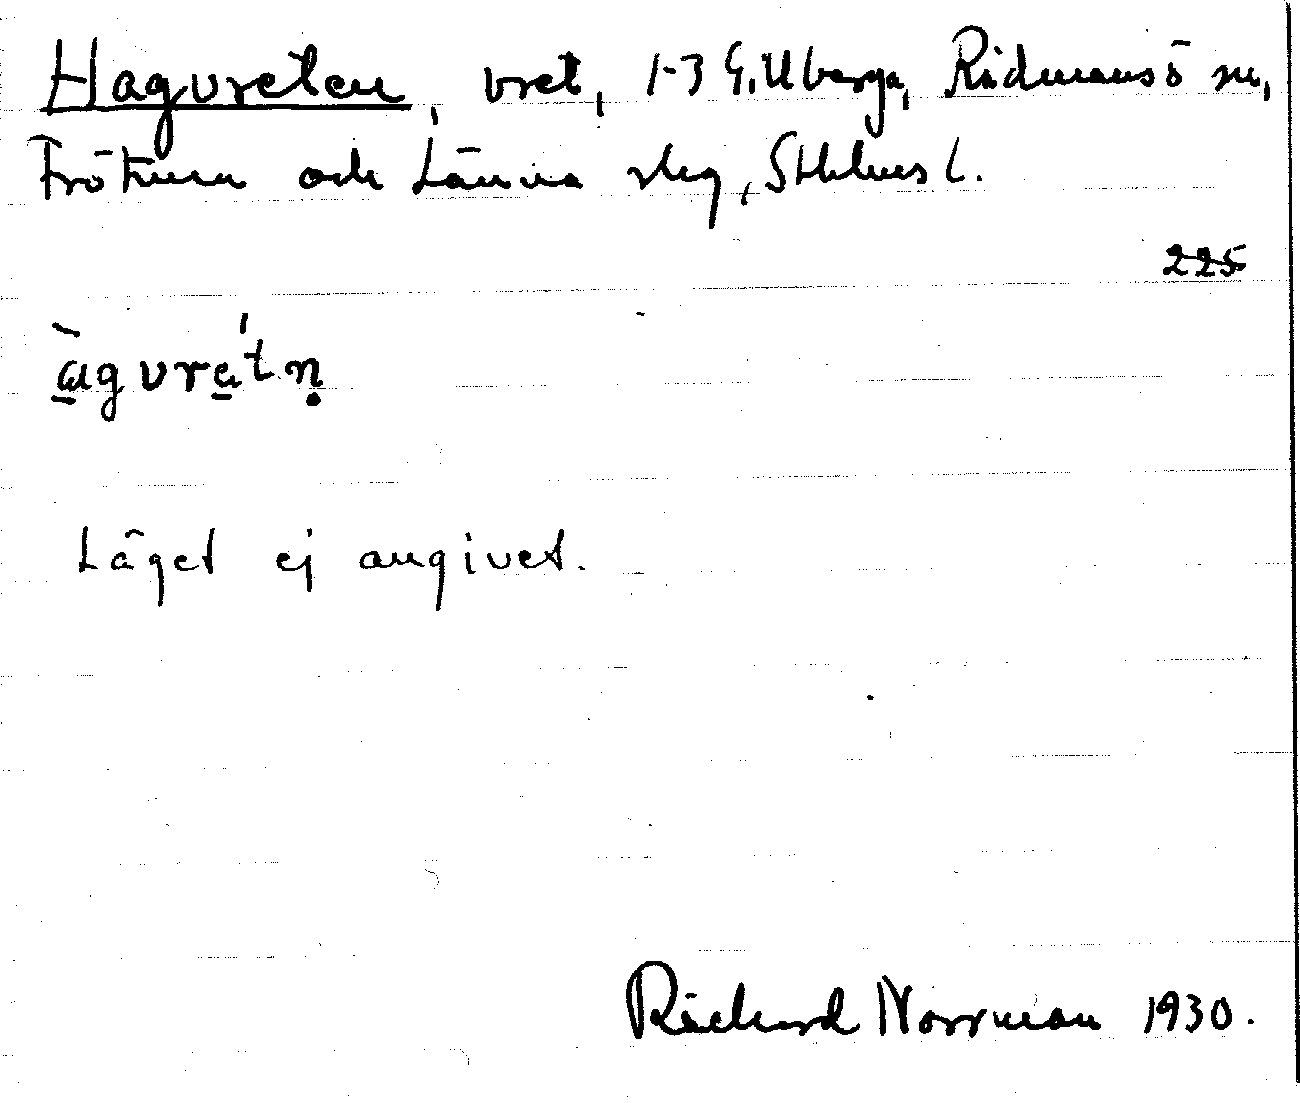 Hagvreten, vret, 1-3 G. Ubarga, Rådmansö sn,
Frötuna och Länna slg, Sthlms l.
225
àgvrétṇ
Läget ej angivet.
Richard Norrman 1930.